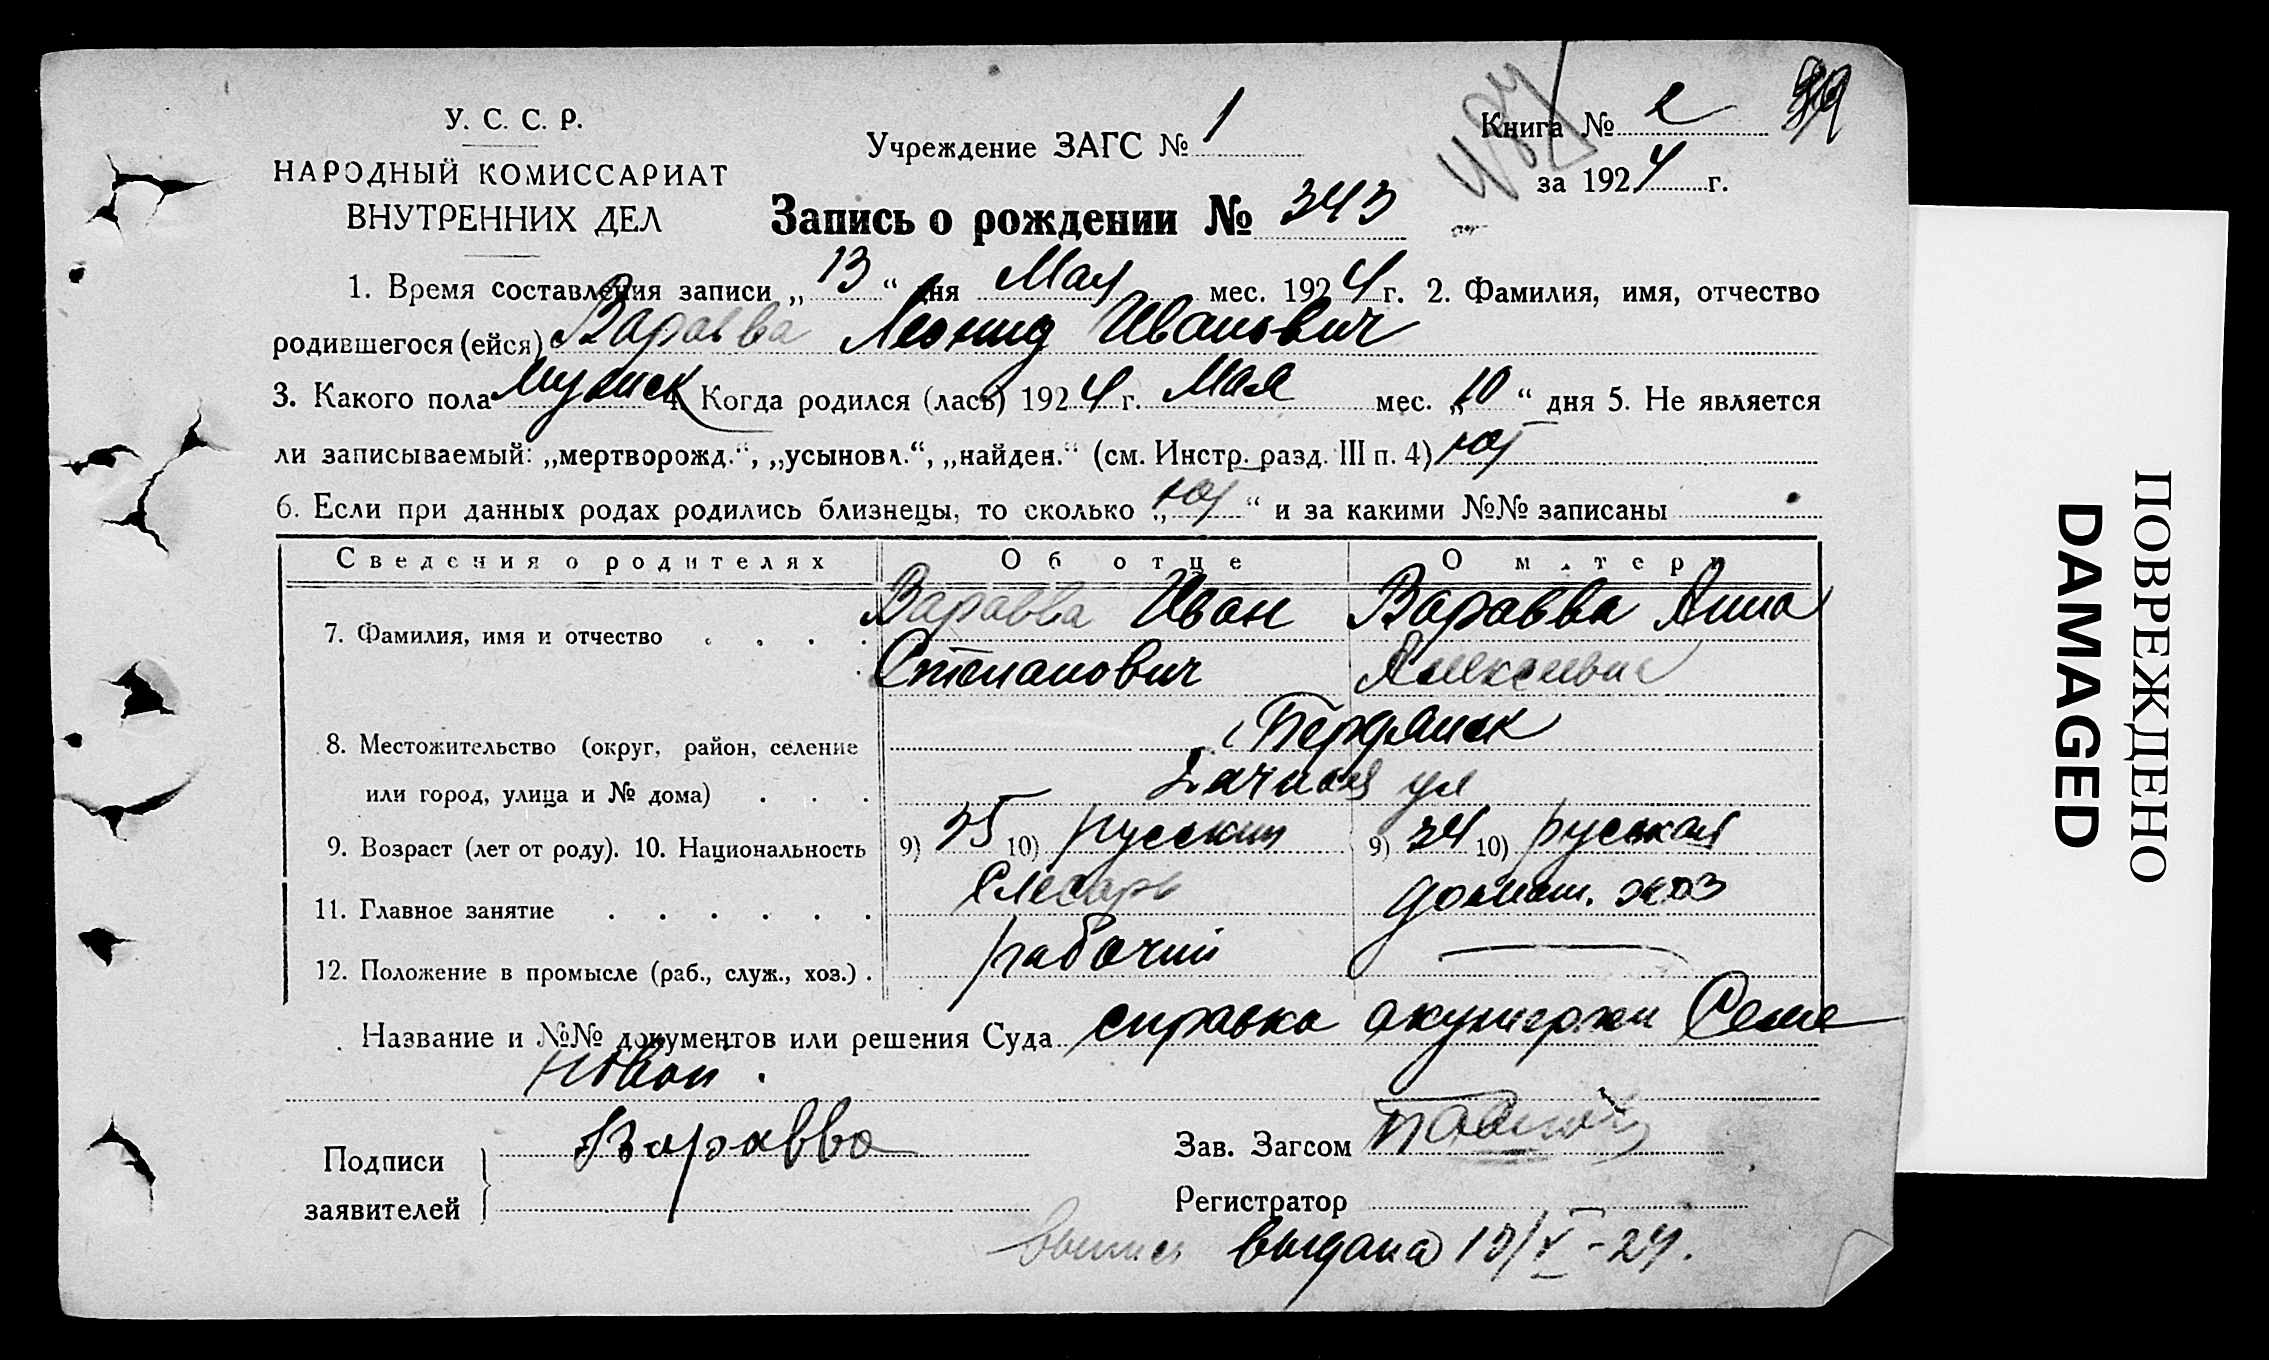 У. С. С. Р.
НАРОДНЫЙ КОМИССАРИАТ
ВНУТРЕННИХ ДЕЛ
Учреждение ЗАГС № 1
Книга № 2
за 1924 г.
Запись о рождении № 343
1. Время составления записи „13“ дня Мая мес. 1924 г. 2. Фамилия, имя, отчество
родившегося (ейся) Варавва Леонид Иванович
3. Какого пола мужск 4. Когда родился (лась) 1924 г. Мая мес. „10“ дня 5. Не является
ли записываемый: „мертворожд.“, „усыновл.“, „найден.“ (см. Инстр. разд. III п. 4)
6. Если при данных родах родились близнецы, то сколько „ “ и за какими №№ записаны
Сведения о родителях Об отце О матери
7. Фамилия, имя и отчество . . . . Варавва Иван Варавва Анна
Степанович
8. Местожительство (округ, район, селение Бердянск
или город, улица и № дома) . . . ул
9. Возраст (лет от роду). 10. Национальность 9) 25 10) русский 9) 24 10) руская
11. Главное занятие . . . . . . Слесарь домаш. хоз
12. Положение в промысле (раб., служ., хоз.) . рабочий —
Название и №№ документов или решения Суда справка акушерки Семе
новой.
Подписи
заявителей
Варавва
Зав. Загсом
Регистратор
выпись выдана 13/V-24.
ПОВРЕЖДЕНО
DAMAGED